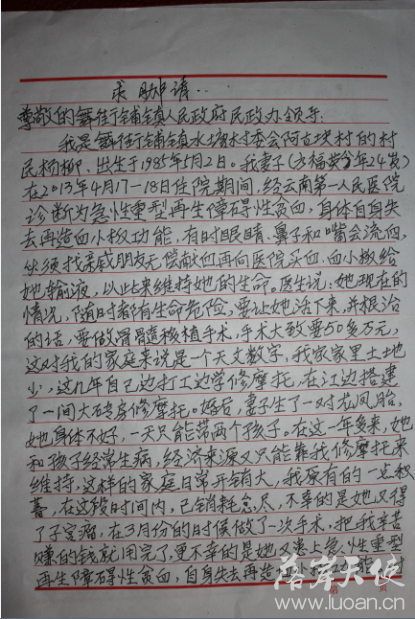 求助申请
尊敬的舞街铺镇人民政府民政办领导:
我是舞街铺镇水塘村委会阿古块村的村
民杨柳、出生于1985年5月2日。我妻子(方福芬今年24岁)
在2013年4月17—18日住院期间,经云南第一人民医院
诊断为急性重型再生障碍性贫血,身体自身失
去再造血小板功能,有时眼睛、鼻子和嘴会流血,
必须找亲戚朋友无偿献血再向医院买血,血小板给
她输液,以此来维持她的生命。医生说:她现在的
情况,随时都有生命危险,要让她活下来,并根治
的话,要做骨髓移植手术,手术大致要50多万元,
这对我的家庭来说是一个天文数字,我家家里土地
少,这几年自己边打工边学修摩托,在江边搭建
了一间大砖房修摩托。婚后,妻子生了一对龙凤胎,
她身体不好,一天只能带两个孩子。在这一年多来,她
和孩子经常生病,经济来源又只能靠我修摩托来
维持,这样的家庭日常开销大,我原有的一点积
蓄,在这段时间内,已销耗怠尽,不幸的是她又得
了子宫瘤,在3月份的时候做了一次手术,把我辛苦
赚的钱就用完了,更不幸的是她又患上急性重型
再生障碍性贫血,自身失去再造血小板功能
落岸天使
www.luoan.cn